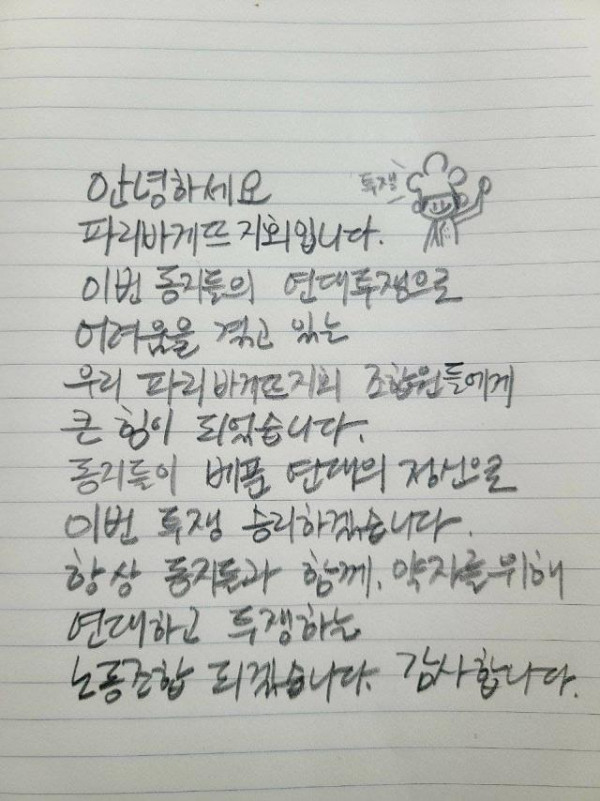 안녕하세요
투쟁
파리바게뜨 지회입니다.
이번 동지들의 연대투쟁으로
어려움을 겪고 있는
우리 파리바게뜨지회 조합원들에게
큰 힘이 되었습니다.
동지들이 베품 연대의 정신으로
이번 투쟁 승리하겠습니다.
항상 동지들과 함께, 약자를 위해
연대하고 투쟁하는
노동조합 되겠습니다. 감사합니다.